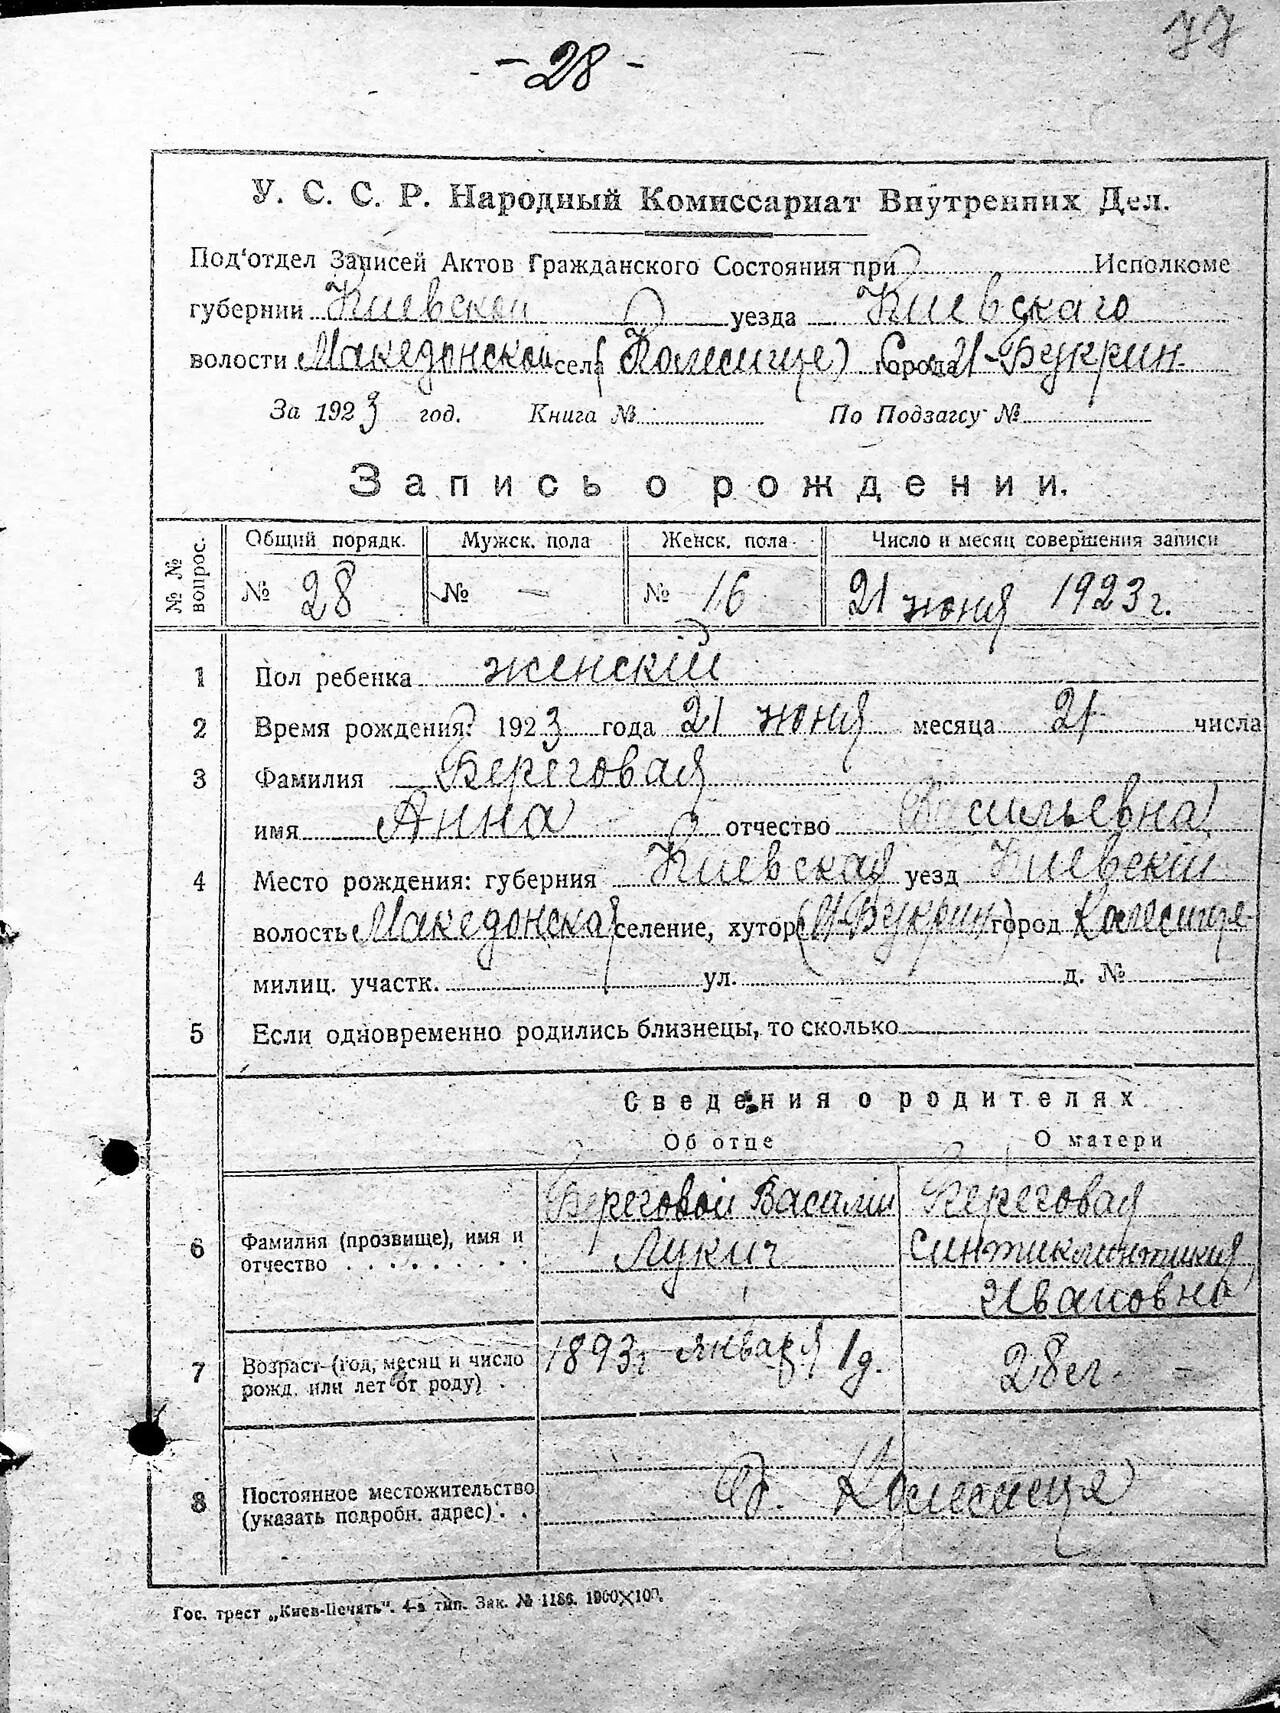 77
- 28 -
У. С. С. Р. Народный Комиссариат Внутренних Дел.
Под'отдел Записей Актов Гражданского Состояния при Исполкоме
губернии Киевской уезда Киевскаго
волости Македонской села (Колесище) города И-Букрин
За 1923 год. Книга № По Подзагсу №
Запись о рождении.
№ № вопрос.
Общий порядк. Мужск. пола Женск. пола Число и месяц совершения записи
№ 28 № — № 16 21 июня 1923 г.
1 Пол ребенка женскій
2 Время рождения: 1923 года 21 июня месяца 21 числа
3 Фамилия Береговая
имя Анна отчество Васильевна
4 Место рождения: губерния Киевская уезд Киевскій
волость Македонская селение, хутор (И-Букрин) город Колесище
милиц. участк. ул. д. №
5 Если одновременно родились близнецы, то сколько
Сведения о родителях
Об отце О матери
6 Фамилия (прозвище), имя и отчество
Береговой Василий Лукич
Береговая Ивановна
7 Возраст (год, месяц и число рожд. или лет от роду)
1893 г января 1 д.
28 л. -
8 Постоянное местожительство (указать подробн. адрес)
Колесище
Гос. трест „Киев-Печать". 4-я тип. Зак. № 1186. 1900×100.